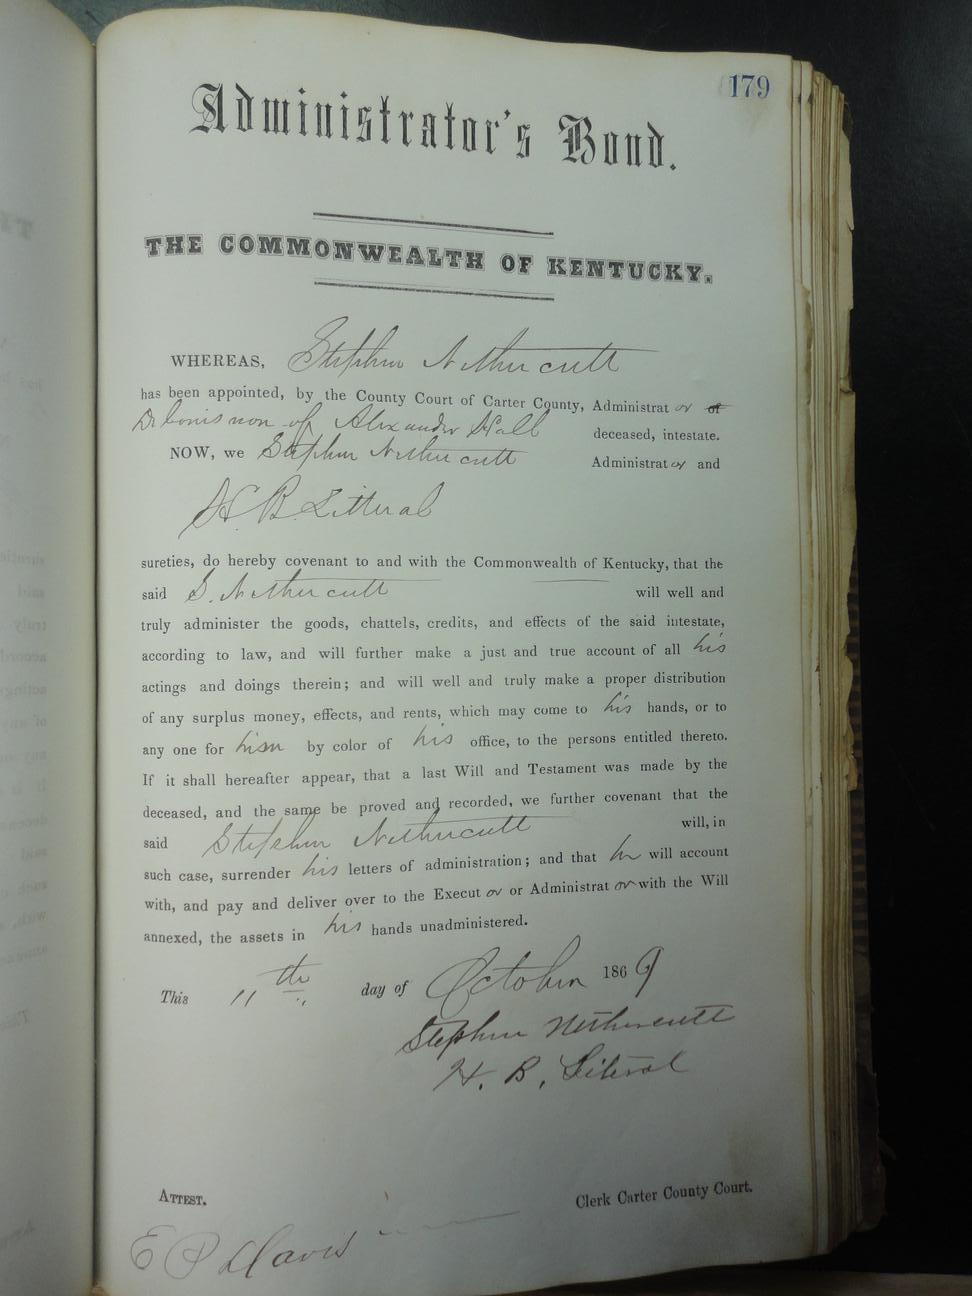 179
Administrator's Bond.
THE COMMONWEALTH OF KENTUCKY.
WHEREAS, Stephen Nethercutt
has been appointed, by the County Court of Carter County, Administrat or of
De bonis non of Alexander Hall deceased, intestate.
NOW, we Stephen Nethercutt Administrator and
H. B. Litteral
sureties, do hereby covenant to and with the Commonwealth of Kentucky, that the
said S. Nethercutt will well and
truly administer the goods, chattels, credits, and effects of the said intestate,
according to law, and will further make a just and true account of all his
actings and doings therein; and will well and truly make a proper distribution
of any surplus money, effects, and rents, which may come to his hands, or to
any one for him by color of his office, to the persons entitled thereto.
If it shall hereafter appear, that a last Will and Testament was made by the
deceased, and the same be proved and recorded, we further covenant that the
said Stephen Nethercutt will, in
such case, surrender his letters of administration; and that he will account
with, and pay and deliver over to the Execut or or Administrat or with the Will
annexed, the assets in his hands unadministered.
This 11th day of October 1869
Stephen Nethercutt
H. B. Literal
ATTEST. Clerk Carter County Court.
E P Davis